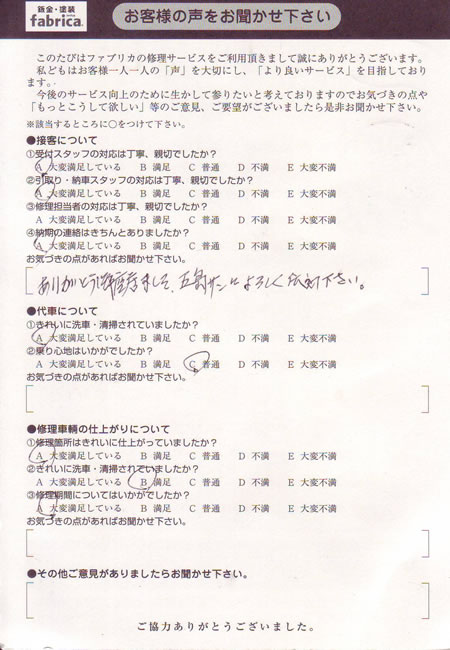 鈑金・塗装
fabrica.
お客様の声をお聞かせ下さい
このたびはファブリカの修理サービスをご利用頂きまして誠にありがとうございます。
私どもはお客様一人一人の「声」を大切にし、「より良いサービス」を目指しており
ます。
今後のサービス向上のために生かして参りたいと考えておりますのでお気づきの点や
「もっとこうして欲しい」等のご意見、ご要望がございましたら是非お聞かせ下さい。
※該当するところに○をつけて下さい。
●接客について
①受付スタッフの対応は丁寧、親切でしたか？
A 大変満足している B 満足 C 普通 D 不満 E 大変不満
②引取り・納車スタッフの対応は丁寧、親切でしたか？
A 大変満足している B 満足 C 普通 D 不満 E 大変不満
③修理担当者の対応は丁寧、親切でしたか？
A 大変満足している B 満足 C 普通 D 不満 E 大変不満
④納期の連絡はきちんとありましたか？
A 大変満足している B 満足 C 普通 D 不満 E 大変不満
お気づきの点があればお聞かせ下さい。
ありがとう ました、 サンに よろしく 下さい。
●代車について
①きれいに洗車・清掃されていましたか？
A 大変満足している B 満足 C 普通 D 不満 E 大変不満
②乗り心地はいかがでしたか？
A 大変満足している B 満足 C 普通 D 不満 E 大変不満
お気づきの点があればお聞かせ下さい。
●修理車輌の仕上がりについて
①修理箇所はきれいに仕上がっていましたか？
A 大変満足している B 満足 C 普通 D 不満 E 大変不満
②きれいに洗車・清掃されていましたか？
A 大変満足している B 満足 C 普通 D 不満 E 大変不満
③修理期間についてはいかがでしたか？
A 大変満足している B 満足 C 普通 D 不満 E 大変不満
お気づきの点があればお聞かせ下さい。
●その他ご意見がありましたらお聞かせ下さい。
ご協力ありがとうございました。